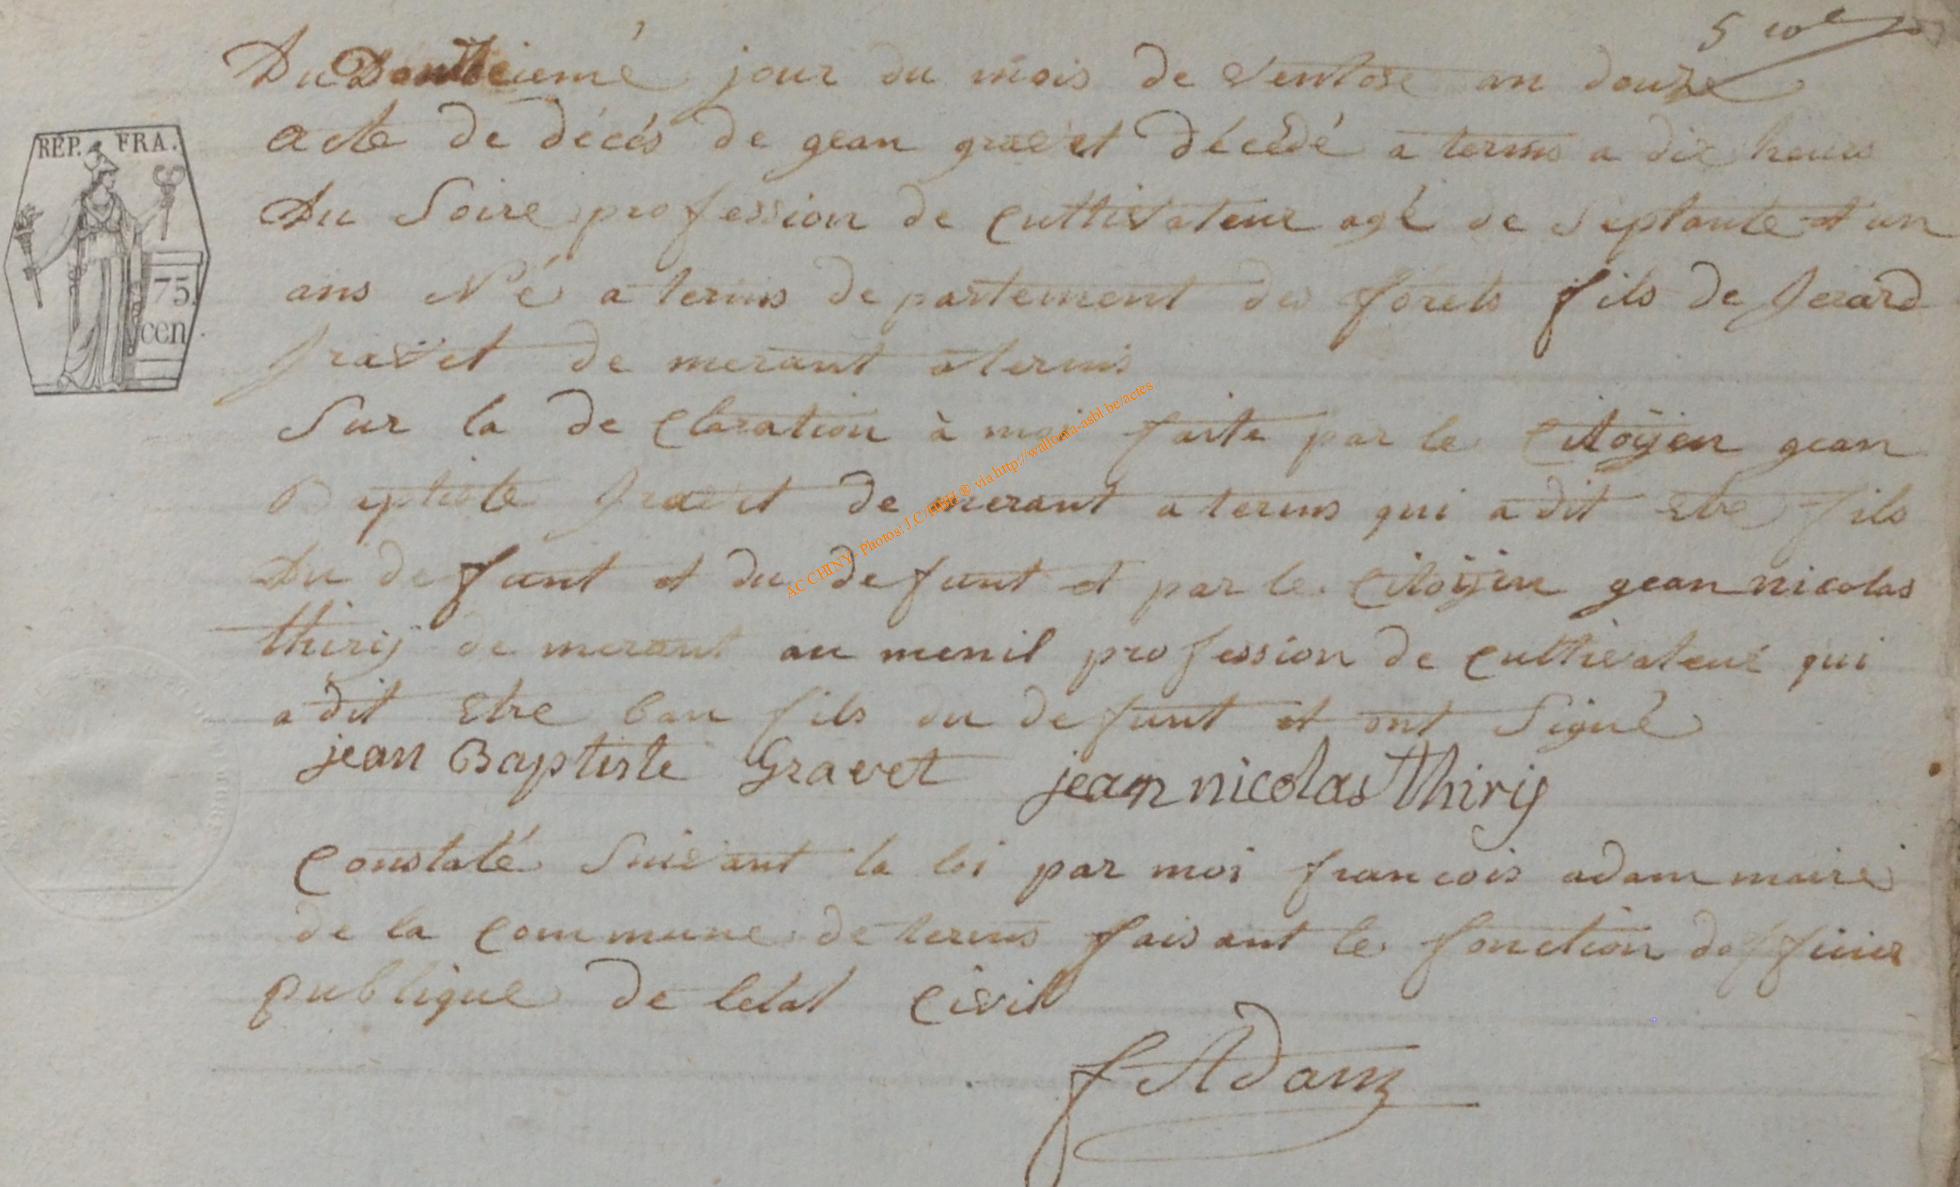 5 role
Du Douzieme jour du mois de ventose an douze
acte de décés de gean gravet décédé a termes a dix heures
REP. FRA.
Du Soire profession de cultivateur agé de Septante et un
75.
cen.
ans Né a termes departement des forets fils de Jerard
gravet de merant a termes
Sur la de claration à moi faite par le Citoÿen gean
Baptiste gravet de merant a termes qui a dit Etre fils
AC CHINY- Photos: J.C. ® via http://wallonia-asbl.be/actes
Du defunt et du defunt et par le Citoÿen gean nicolas
thirÿ de merant au menil profession de cultivateur qui
a dit Etre bau fils du defunt et ont Signé
jean Baptiste Gravet jean nicolas thirÿ
Constaté Suivant la loi par moi francois adam maire
de la commune de termes faisant le fonction dofficier
publique de letat civil
f Adam